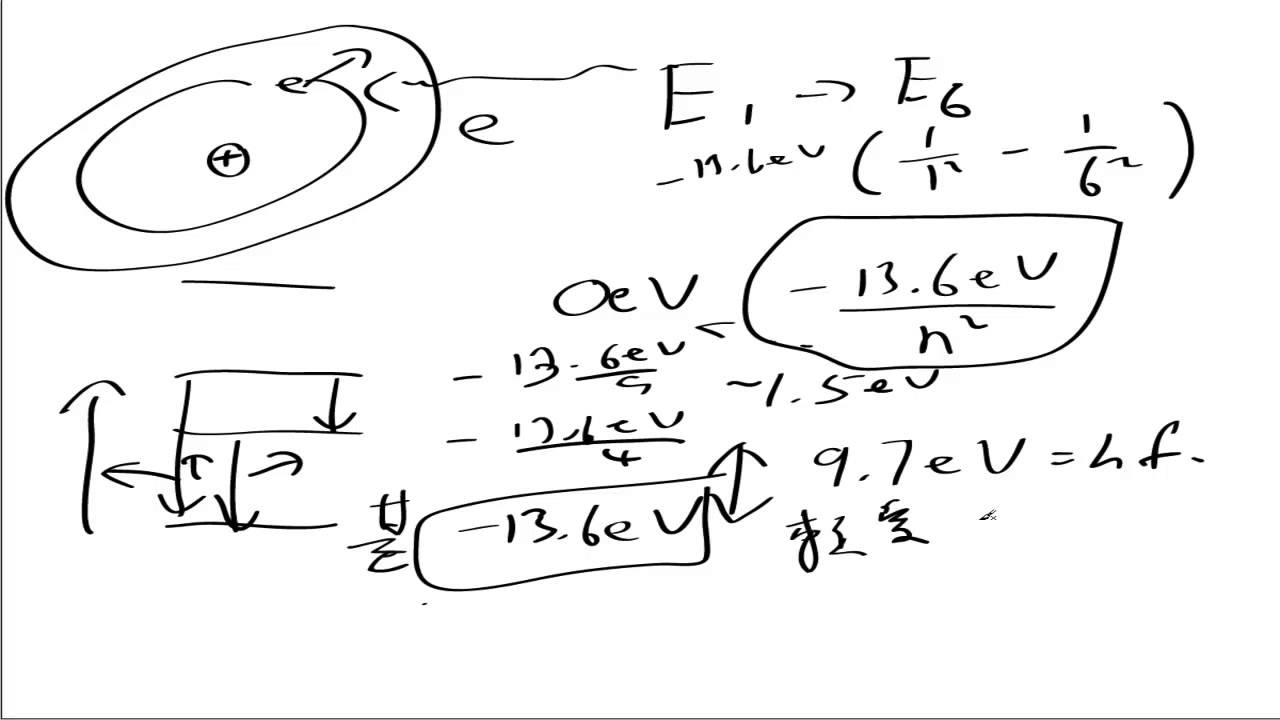 e
⊕
e
E₁ → E₆
-13.6eV (1/1² - 1/6²)
0eV
-13.6eV/n²
-13.6eV/9
~1.5eV
-13.6eV/4
9.7eV = hf.
-13.6eV